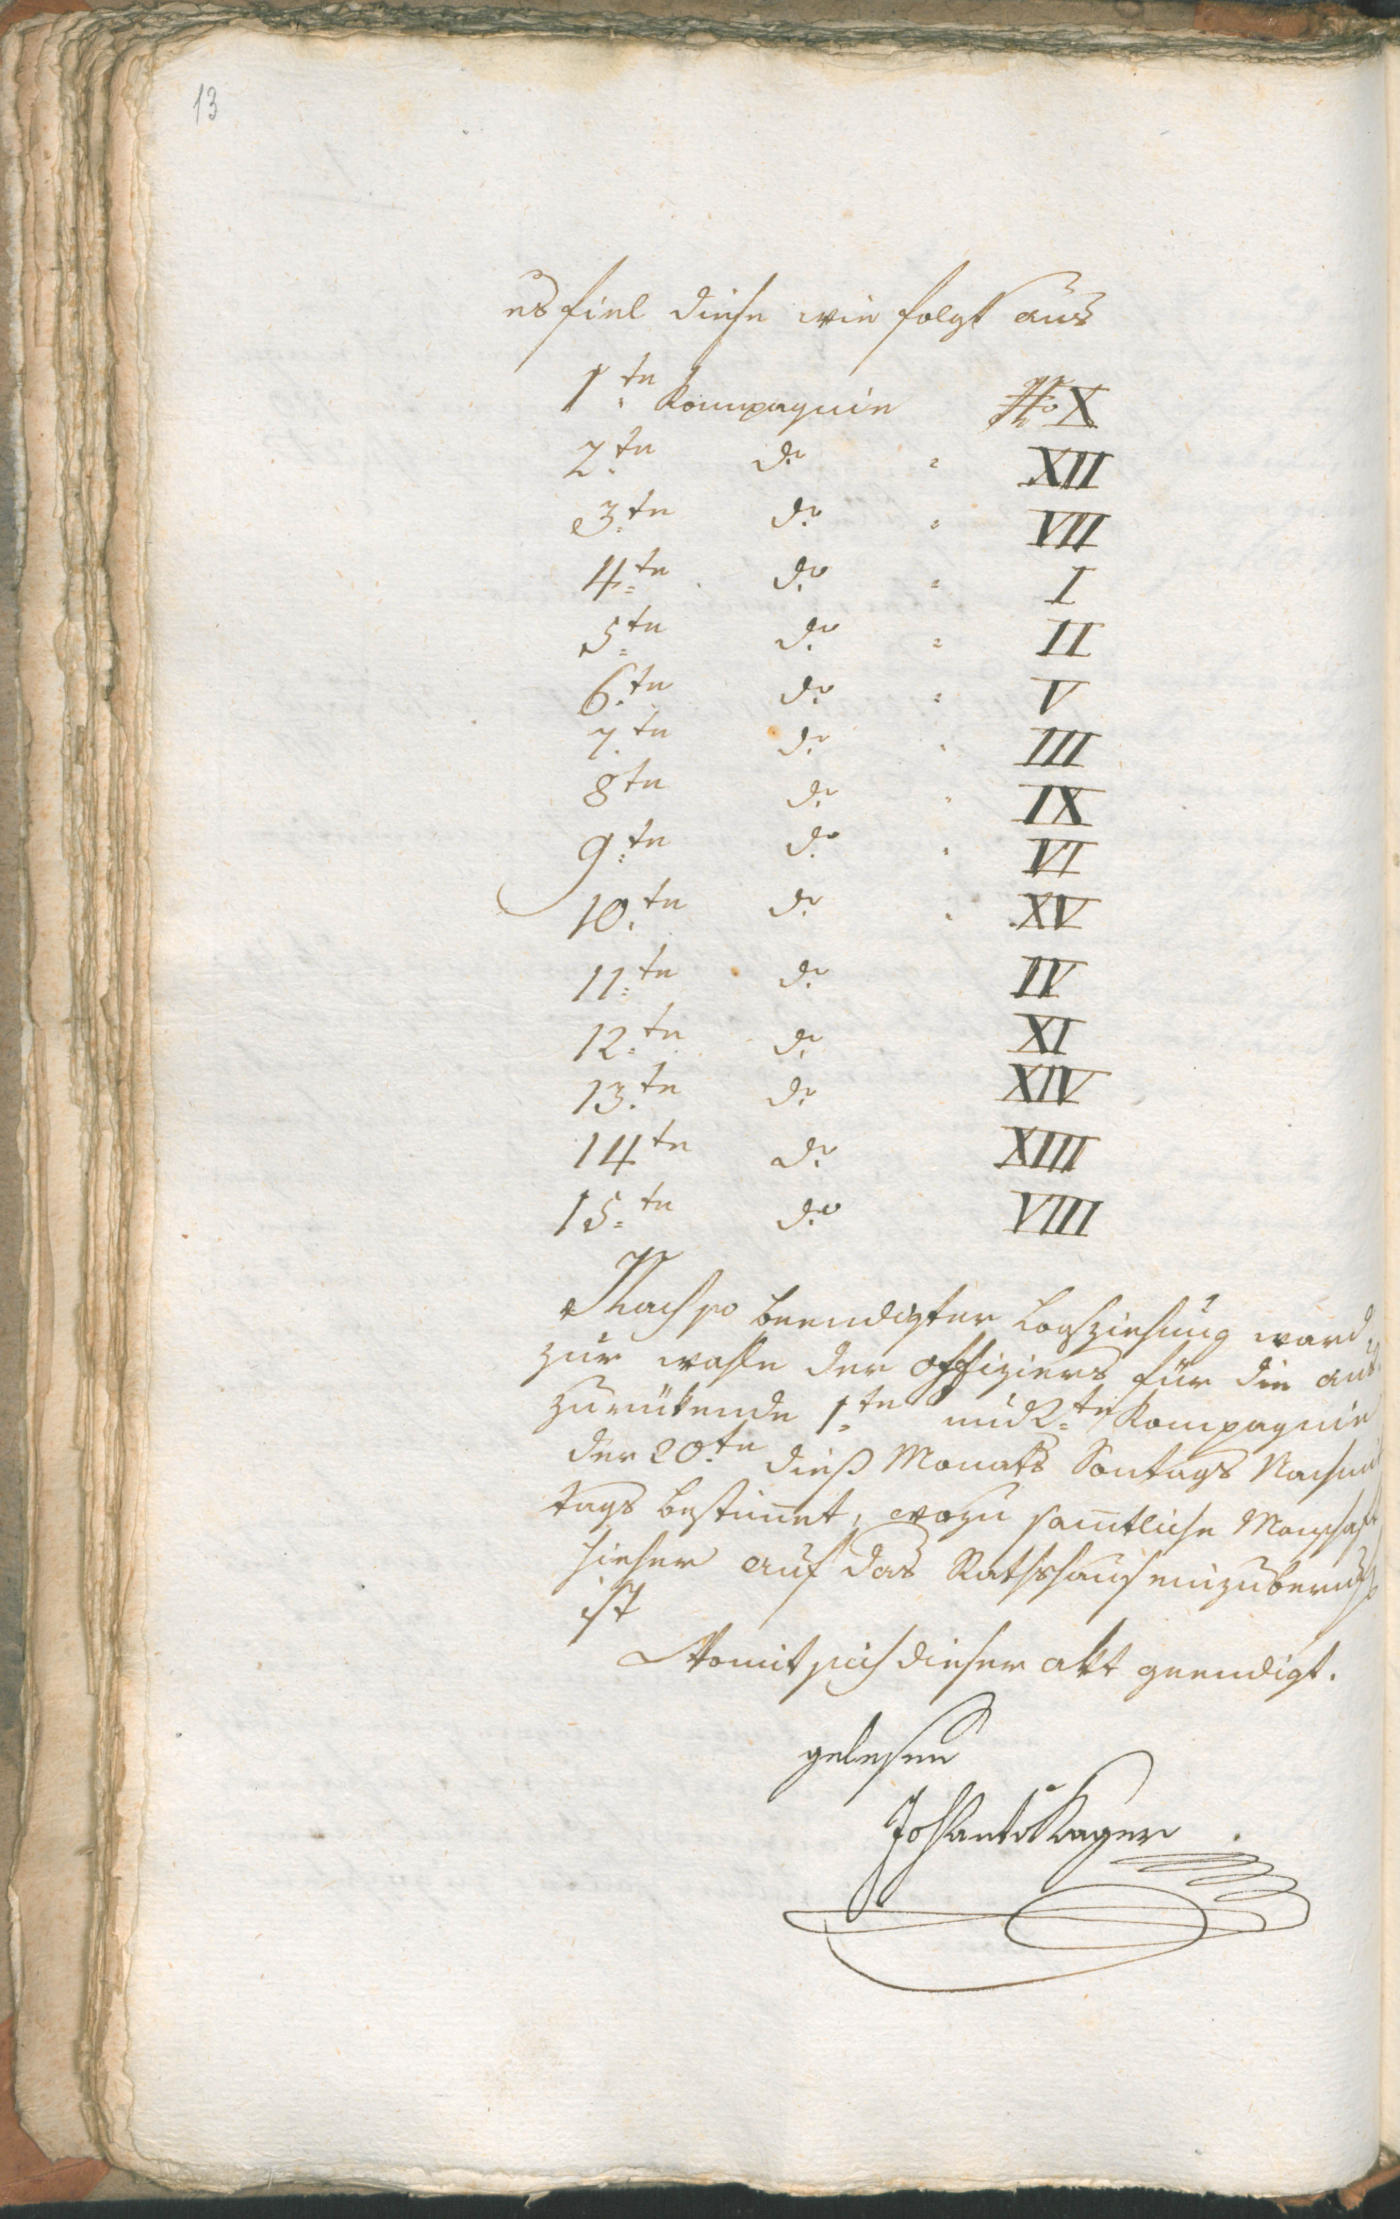 13
es fiel diese wie folgt aus
1.te Kompagnie No X
2.te do " XII
3.te do " VII
4.te do " I
5.te do " II
6.te do " V
7.te do " III
8te do " IX
9.te do " VI
10.te do " XV
11.te do IV
12.te do XI
13.te do XIV
14te do XIII
15.te do VIII
Nach so beendigter Losziehung ward
zur wahle der offiziers für die aus
zurükende 1.te und 2.te Kompagnie
der 20.te dieß Monats Sontags Nachmit
tags bestim̅et, wozu sam̅tliche Manschaft
hieher auf das Rathshaus einzuberufen
ist
Womit sich dieser akt geendigt.
gelesen
Joh Anto Kager